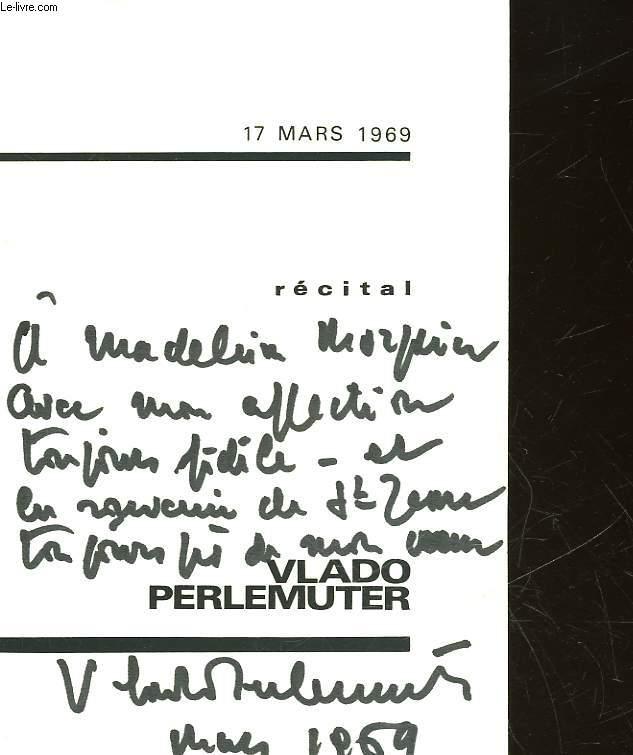 Le-livre.com
17 MARS 1969
récital
À Madeleine
avec mon affection
toujours fidèle - et
en souvenir de
toujours près de mon cœur
VLADO
PERLEMUTER
Vlado Perlemuter
Mars 1969